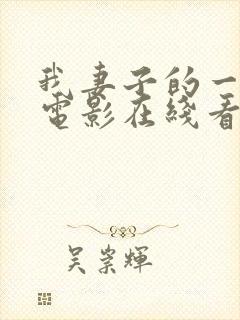 我妻子的一
電影在綫看
吴崇輝